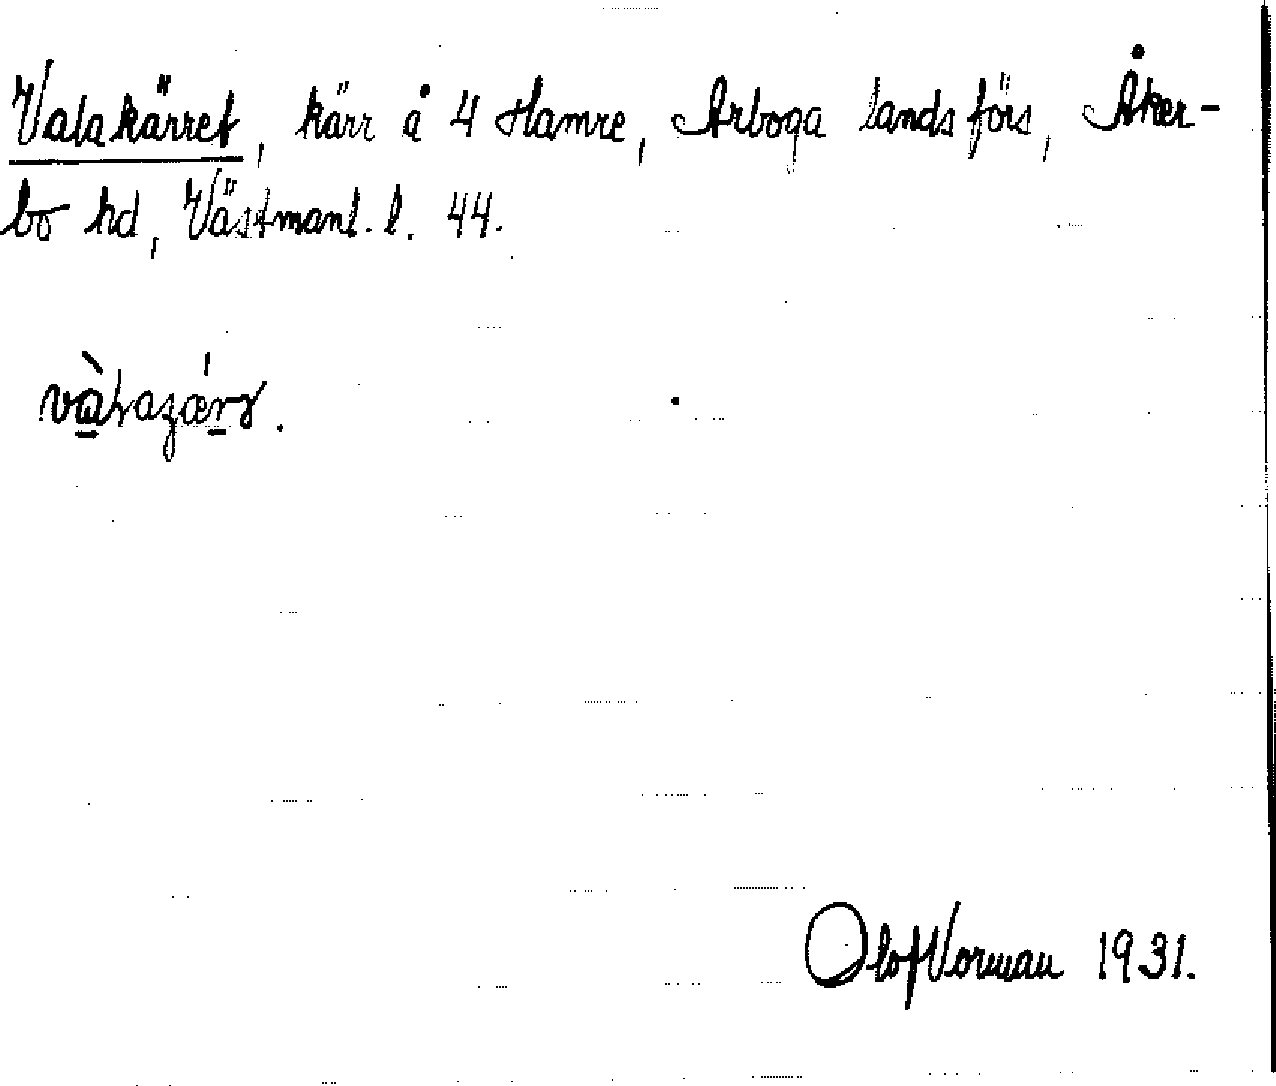 Valakärret, kärr å 4 Hamre, Arboga landsförs, Åker-
bo hd, Västmanl. l. 44.
Olof Norman 1931.